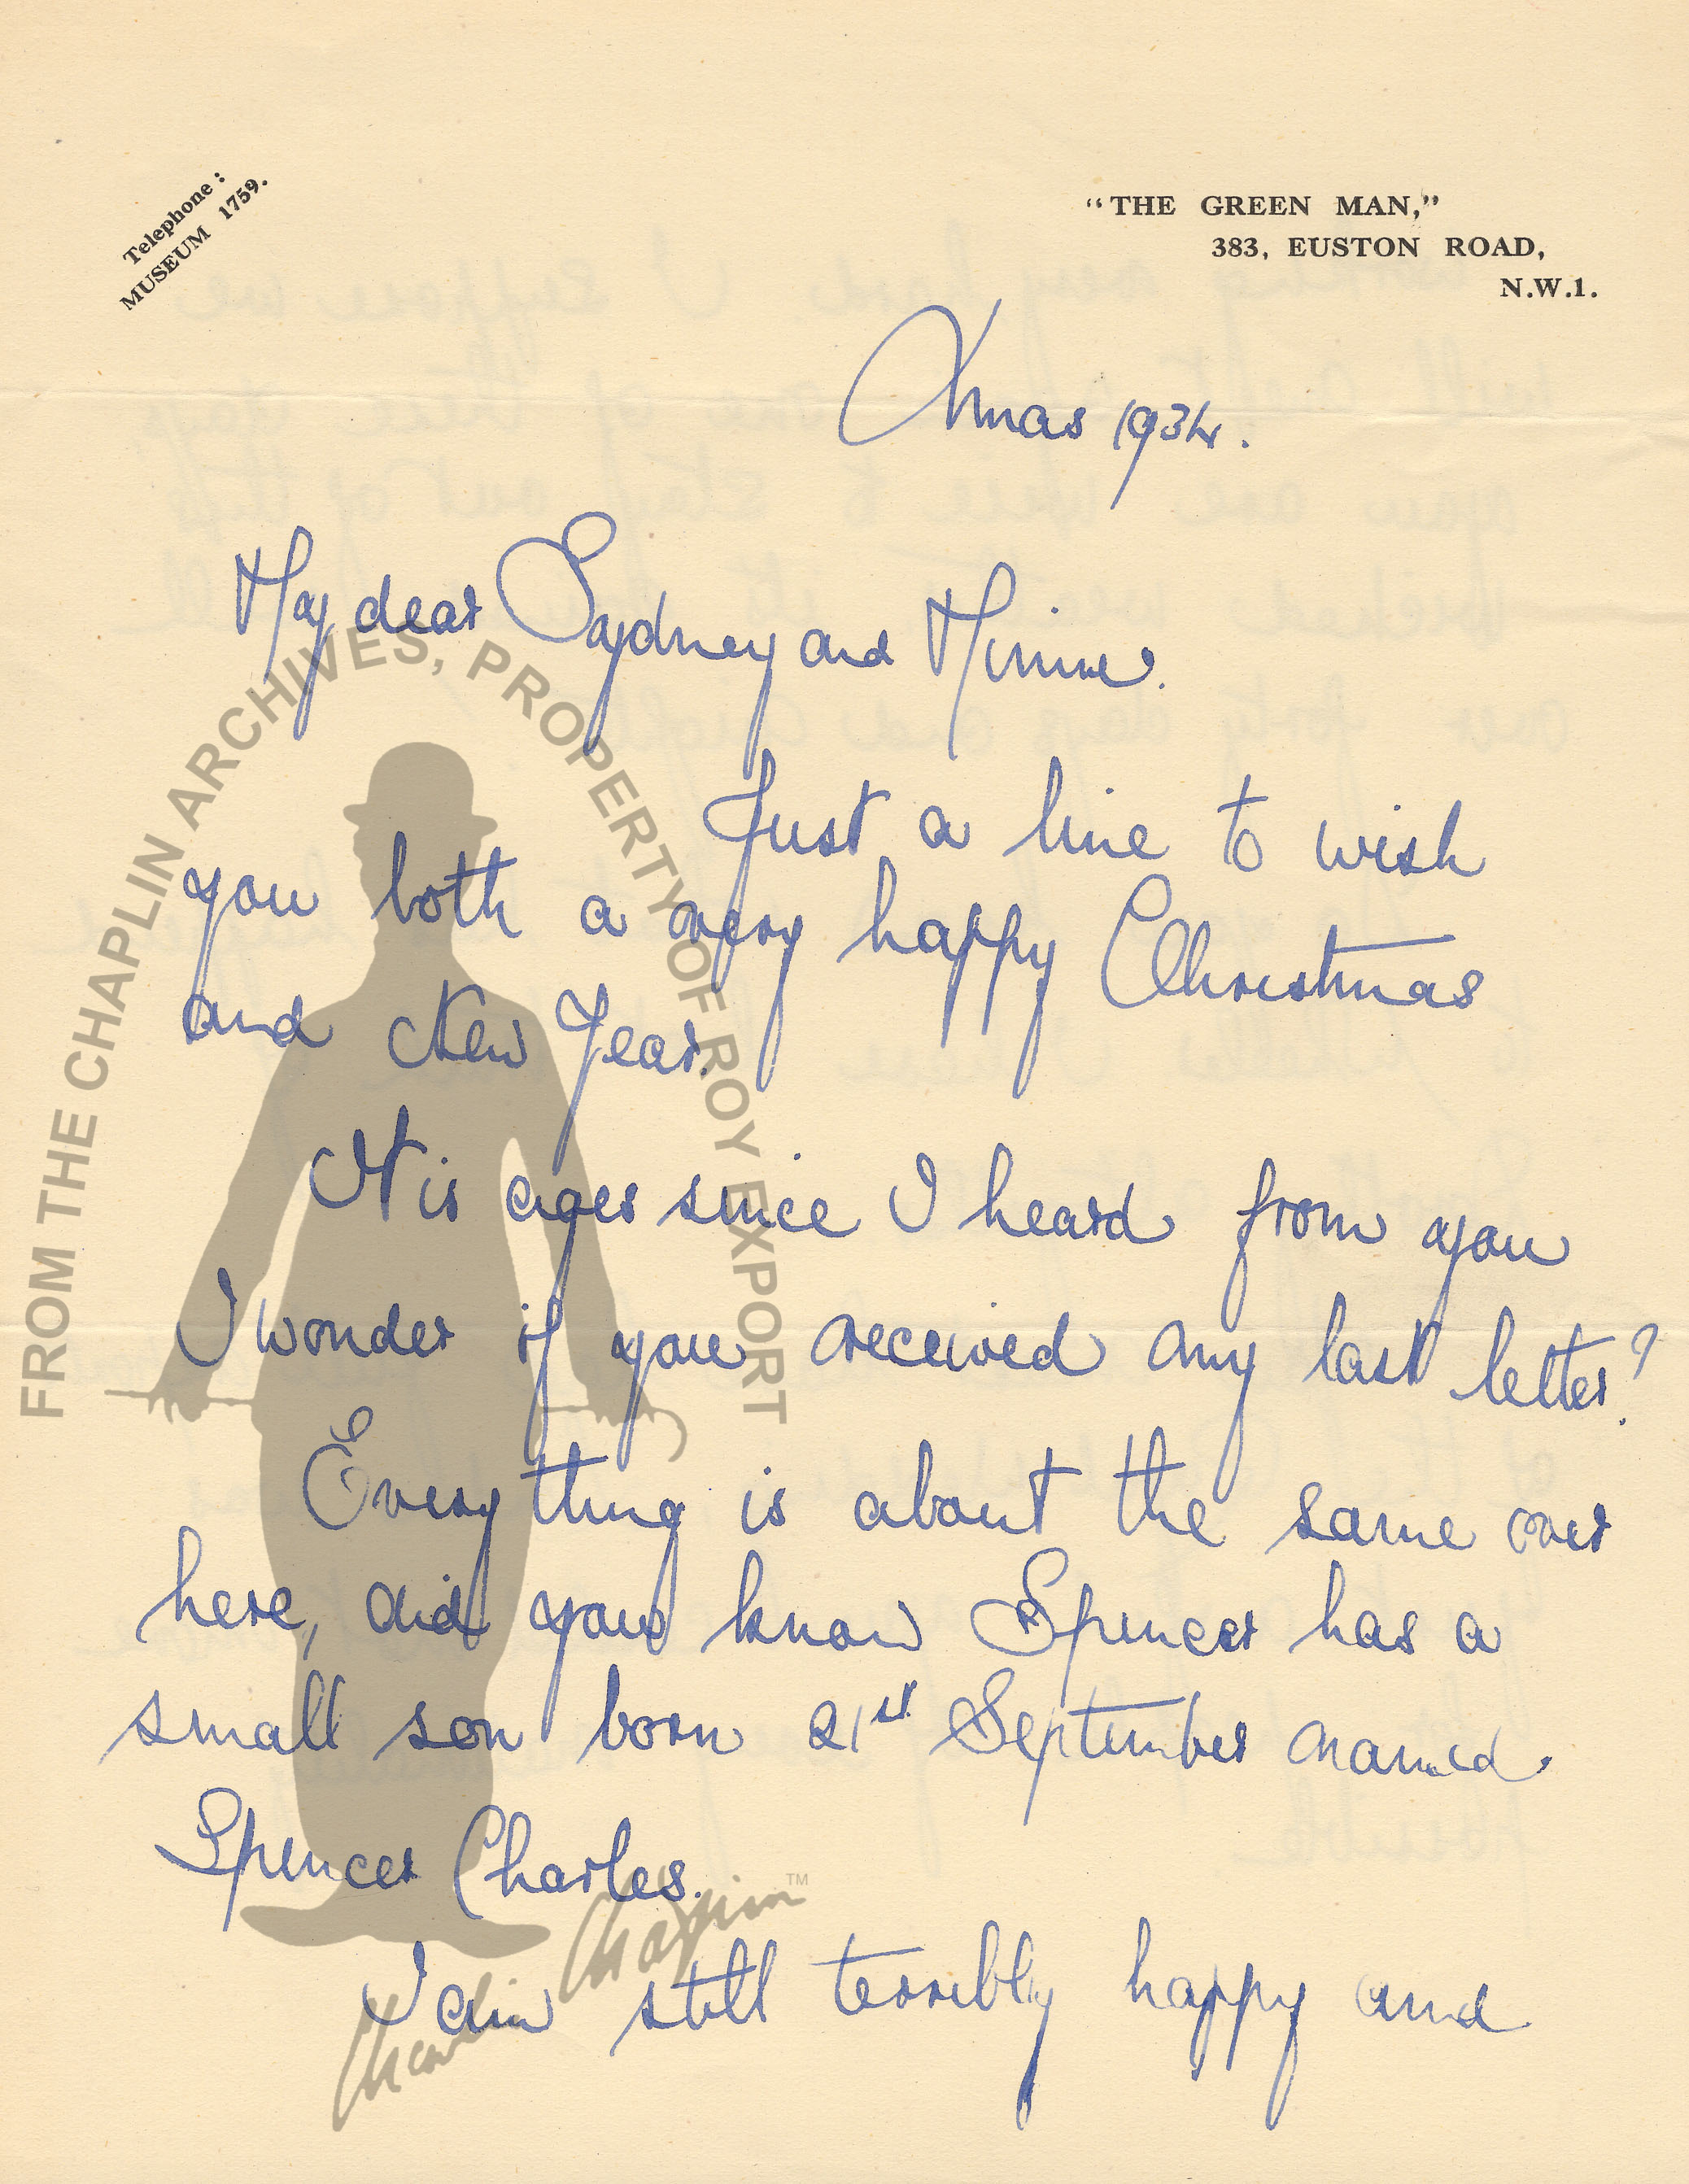 Telephone :
MUSEUM 1759.
"THE GREEN MAN,"
383, EUSTON ROAD,
N.W.1.
Xmas 1934.
My dear Sydney and Minnie.
Just a line to wish
you both a very happy Christmas
and New Year.
It is ages since I heard from you
I wonder if you received my last letter?
Every thing is about the same over
here, did you know Spencer has a
small son born 21st September named.
Spencer Charles.
I am still terribly happy and
FROM THE CHAPLIN ARCHIVES, PROPERTY OF ROY EXPORT
Charlie Chaplin ™